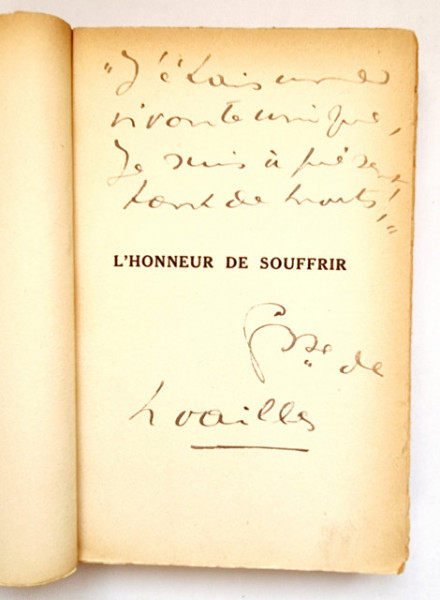 "J'étais une
vivante unique,
Je suis à présent
tant de morts!"
L'HONNEUR DE SOUFFRIR
Ctsse de
Noailles